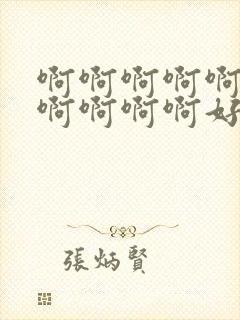 啊啊啊啊啊
啊啊啊啊好
張炳賢